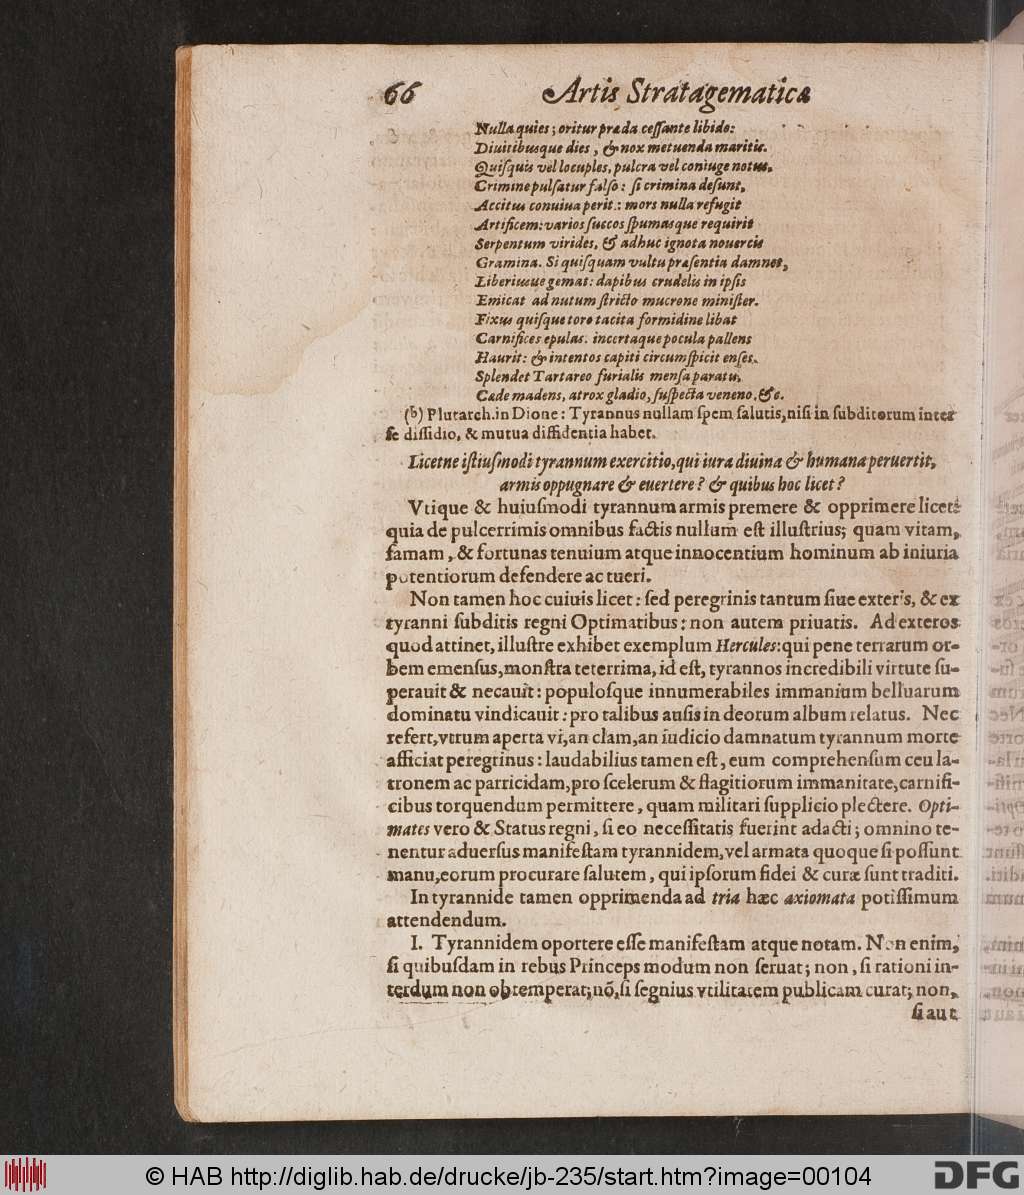 66 Artis Stratagematicæ
Nulla quies; oritur præda cessante libido:
Diuitibusque dies, & nox metuenda maritis.
Quisquis vel locuples, pulcra vel coniuge notus,
Crimine pulsatur falso: si crimina desunt,
Accitus conuiua perit: mors nulla refugit
Artificem: varios succos spumasque requirit
Serpentum virides, & adhuc ignota nouercis
Gramina. Si quisquam vultu præsentia damnet,
Liberiusue gemat: dapibus crudelis in ipsis
Emicat ad nutum stricto mucrone minister.
Fixus quisque toro tacita formidine libat
Carnifices epulas. incertaque pocula pallens
Haurit: & intentos capiti circumspicit enses.
Splendet Tartareo furialis mensa paratu,
Cæde madens, atrox gladio, suspecta veneno, &c.
(b) Plutarch. in Dione: Tyrannus nullam spem salutis, nisi in subditorum inter
se dissidio, & mutua diffidentia habet.
Licetne istiusmodi tyrannum exercitio, qui iura diuina & humana peruertit,
armis oppugnare & euertere? & quibus hoc licet?
Vtique & huiusmodi tyrannum armis premere & opprimere licet:
quia de pulcerrimis omnibus factis nullum est illustrius; quam vitam,
famam, & fortunas tenuium atque innocentium hominum ab iniuria
potentiorum defendere ac tueri.
Non tamen hoc cuiuis licet: sed peregrinis tantum siue exteris, & ex
tyranni subditis regni Optimatibus: non autem priuatis. Ad exteros
quod attinet, illustre exhibet exemplum Hercules: qui pene terrarum or-
bem emensus, monstra teterrima, id est, tyrannos incredibili virtute su-
perauit & necauit: populosque innumerabiles immanium belluarum
dominatu vindicauit: pro talibus ausis in deorum album relatus. Nec
refert, vtrum aperta vi, an clam, an iudicio damnatum tyrannum morte
afficiat peregrinus: laudabilius tamen est, eum comprehensum ceu la-
tronem ac parricidam, pro scelerum & flagitiorum immanitate, carnifi-
cibus torquendum permittere, quam militari supplicio plectere. Opti-
mates vero & Status regni, si eo necessitatis fuerint adacti; omnino te-
nentur aduersus manifestam tyrannidem, vel armata quoque si possunt
manu, eorum procurare salutem, qui ipsorum fidei & curæ sunt traditi.
In tyrannide tamen opprimenda ad tria hæc axiomata potissimum
attendendum.
I. Tyrannidem oportere esse manifestam atque notam. Non enim,
si quibusdam in rebus Princeps modum non seruat; non, si rationi in-
terdum non obtemperat; nõ, si segnius vtilitatem publicam curat; non,
si aut
© HAB http://diglib.hab.de/drucke/jb-235/start.htm?image=00104
DFG